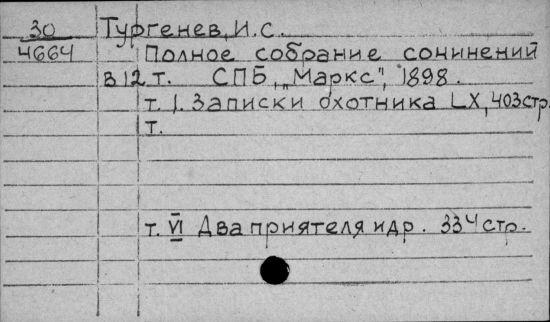 30 Тургенев, И.С.
4664 Полное собрание сочинений
в 12 т. СПБ, „Маркс", 1898.
т. 1. Записки охотника LX, 403 стр.
т.
т. VI Два приятеля и др. 334 стр.